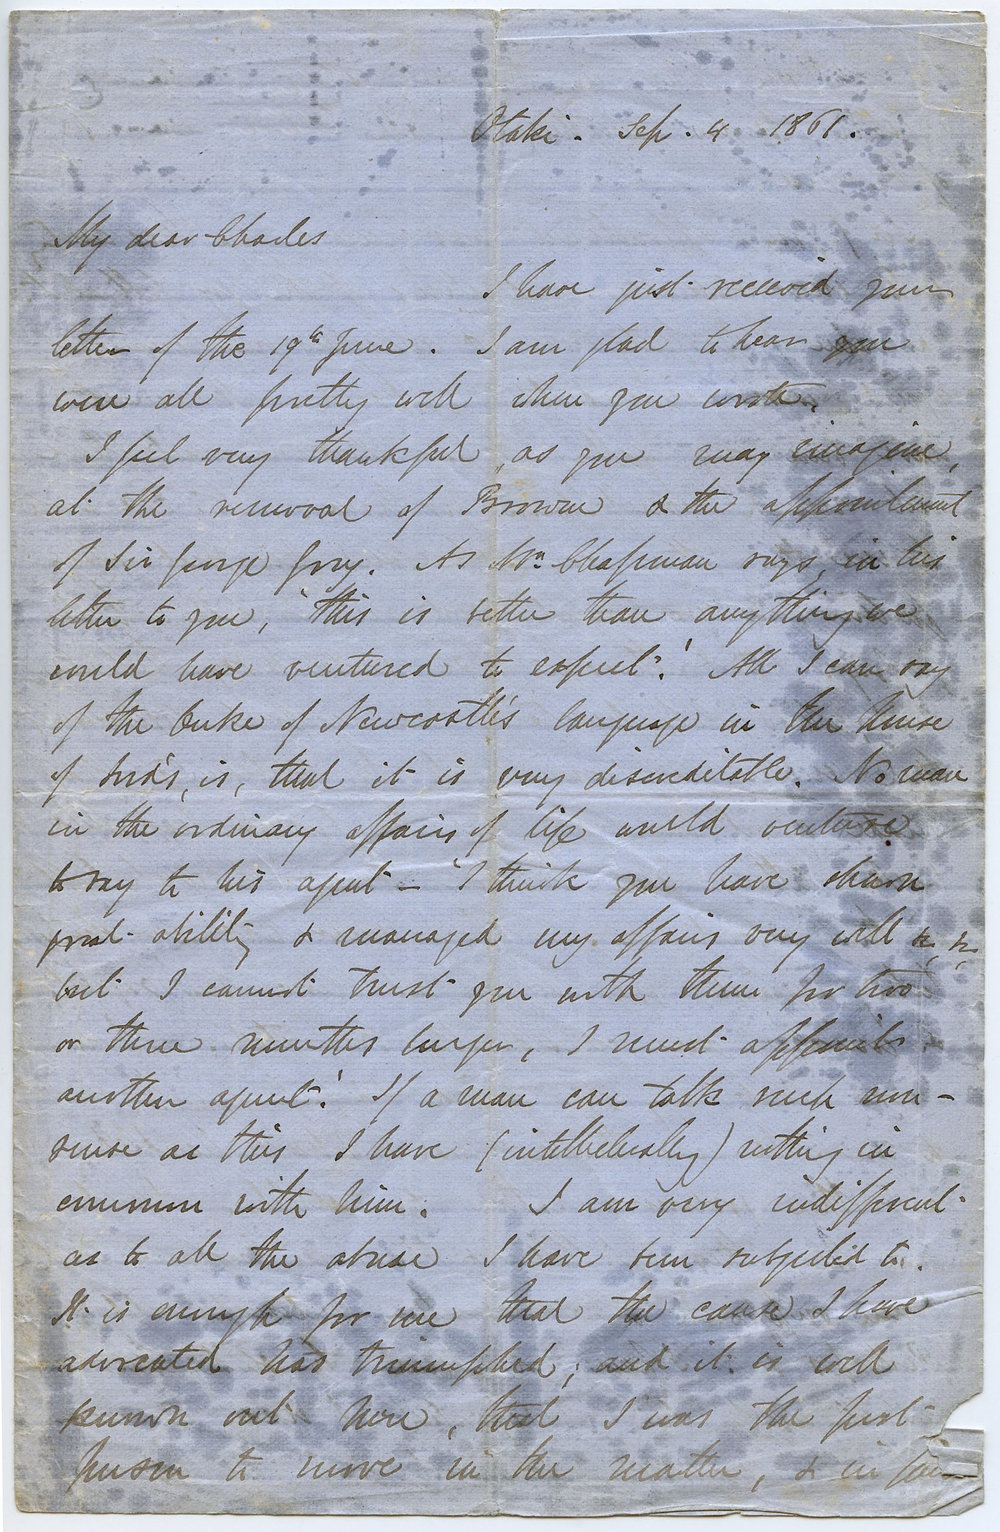 Otaki. Sep. 4 1861.
My dear Charles
I have just received your
letter of the 19th June. I am glad to hear you
were all pretty well when you wrote.
I feel very thankful, as you may imagine,
at the removal of Browne & the appointment
of Sir George Grey. As Mr. Chapman says, in his
letter to you, 'this is better than anything we
could have ventured to expect.' All I can say
of the Duke of Newcastle's language in the House
of Lords, is, that it is very discreditable. No man
in the ordinary affairs of life would venture
to say to his agent — 'I think you have shown
great ability & managed my affairs very well &c, &c,
but I cannot trust you with them for two
or three months longer, I must appoint
another agent.' If a man can talk such non-
sense as this I have (intellectually) nothing in
common with him. I am very indifferent
as to all the abuse I have been subjected to.
It is enough for me that the cause I have
advocated has triumphed; and it is well
known out here, that I was the first
person to move in the matter, & in